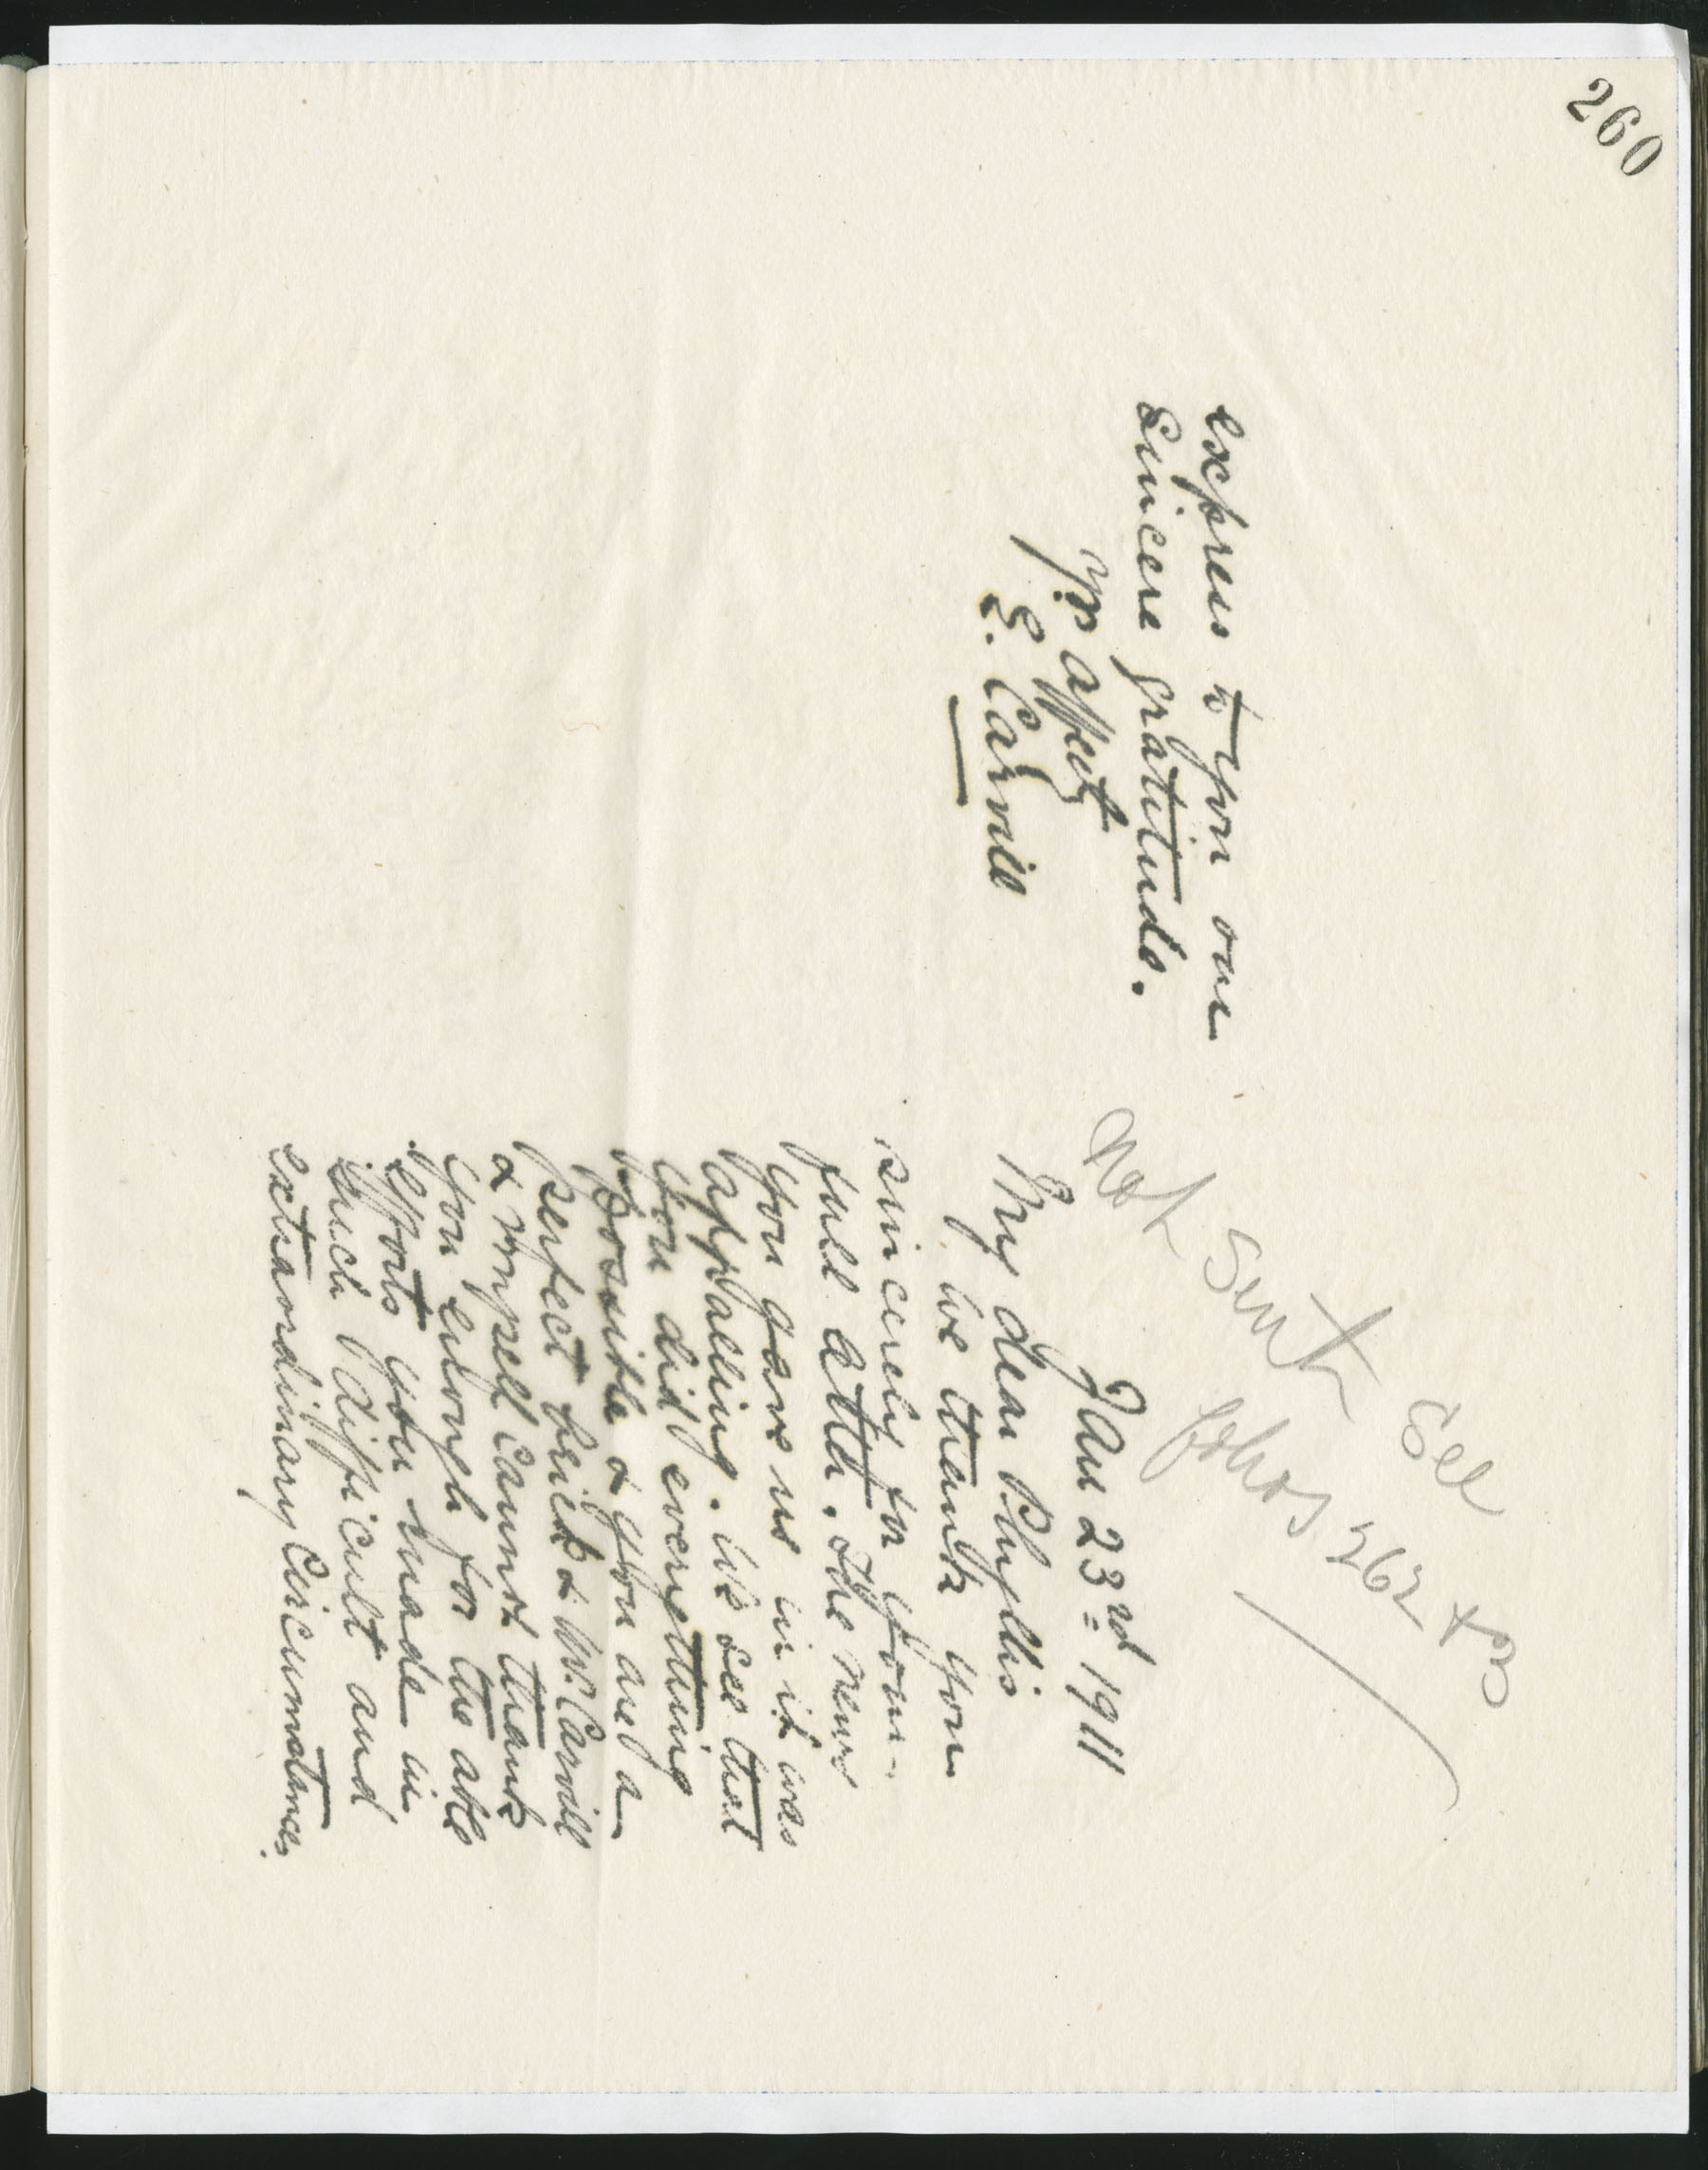 260
Not sent See
folios 262 & 3
Jan 23rd 1911
My dear Phyllis
We thank you
sincerely for your
full letter. The news
you gave us in it was
appalling. We see that
you did everything
possible & you are a
perfect brick & Mr. Carvill
& myself cannot thank
you enough for the able
efforts you made in
such difficult and
extraordinary circumstances.
express to you our
sincere gratitude.
Yrs affect
E. Carvill